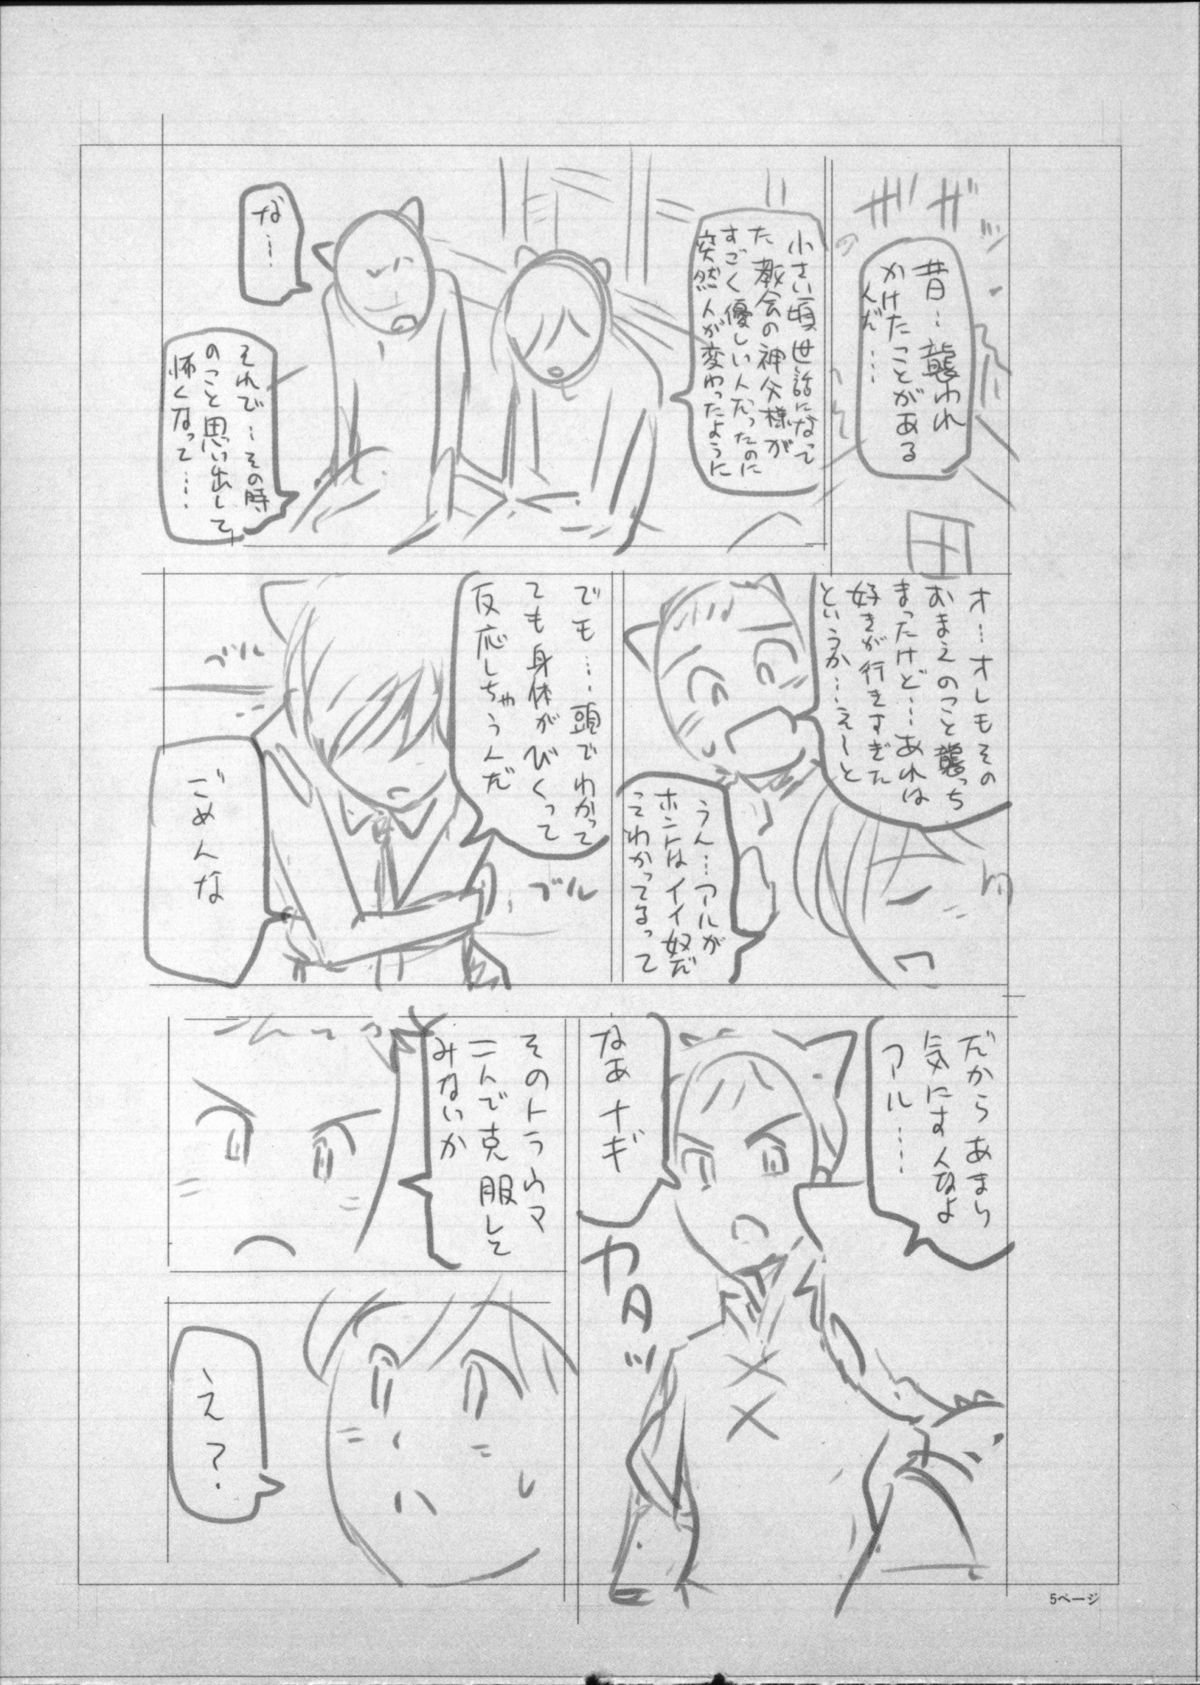 ザザ
昔…襲われ
かけたことがある
んだ…
小さい頃世話になって
た教会の神父様が
すごく優しい人だったのに
突然人が変わったように
な…
それで…その時
のこと思い出して
怖くなって……
オ…オレもその
おまえのこと襲っち
まったけど…あれは
好きが行きすぎた
というか…えーと
うん…アルが
ホントはイイ奴だ
ってわかってるって
でも…頭でわかって
ても身体がびくって
反応しちゃうんだ
ブル
ブル
ごめんな
だからあまり
気にすんなよ
アル……
なあナギ
ガタッ
そのトラウマ
二人で克服して
みないか
え？
5ページ